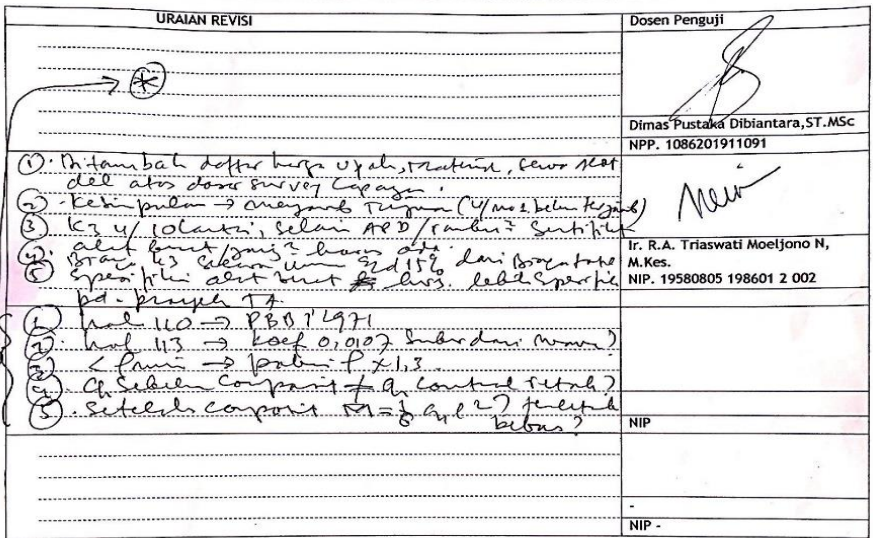 URAIAN REVISI
Dosen Penguji
*
Dimas Pustaka Dibiantara,ST.MSc
NPP. 1086201911091
1. Ditambah daftar harga upah, material, sewa alat
dll atas dasar survey lapangan.
2. Kesimpulan → menjawab Tujuan (4/no 2 belum terjawab)
3. K3 u/ 10 lantai, selain APD/rambu? Sertifikat
alat berat/ yang? harus ada.
4. Biaya K3 secara umum s/d 15% dari Biaya total
5. Spesifikasi alat berat hrs. lebih spesifik
pd. proyek TA
Ir. R.A. Triaswati Moeljono N,
M.Kes.
NIP. 19580805 198601 2 002
1. hal 110 → PBBI 1971
2. hal 113 → koef 0,0107 Sumber dari mana?
3. < ρmin → pakai ρ x 1,3.
4. q sebelum composit ≠ q control retak?
5. Setelah composit M = 1/8 q l²? terletak
bebas?
NIP
-
NIP -